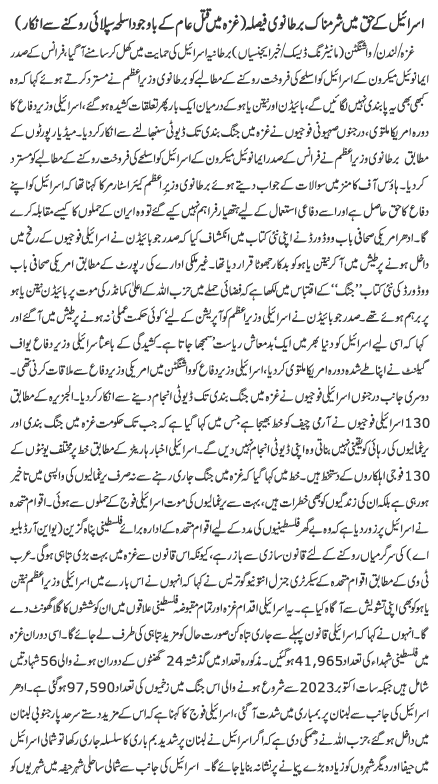 اسرائیل کے حق میں شرمناک برطانوی فیصلہ (غزہ میں قتل عام کے باوجود اسلحہ سپلائی روکنے سے انکار)
غزہ/لندن/واشنگٹن (مانیٹرنگ ڈیسک/خبر ایجنسیاں) برطانیہ اسرائیل کی حمایت میں کھل کر سامنے آگیا، فرانس کے صدر
ایمانوئیل میکرون کے اسرائیل کو اسلحے کی فروخت روکنے کے مطالبے کو برطانوی وزیر اعظم نے مسترد کرتے ہوئے کہا کہ وہ
کبھی بھی یہ پابندی نہیں لگائیں گے، بائیڈن اور نیتن یا ہو کے درمیان ایک بار پھر تعلقات کشیدہ ہوگئے، اسرائیلی وزیر دفاع کا
دورہ امریکا ملتوی، درجنوں صہیونی فوجیوں نے غزہ میں جنگ بندی تک ڈیوٹی سنبھالنے سے انکار کردیا۔ میڈیا رپورٹس کے
مطابق برطانوی وزیر اعظم نے فرانس کے صدر ایمانوئیل میکرون کے اسرائیل کو اسلحے کی فروخت روکنے کے مطالبے کو مسترد
کردیا۔ ہاؤس آف کامنز میں سوالات کے جواب دیتے ہوئے برطانوی وزیر اعظم کیئر اسٹارمر کا کہنا تھا کہ اسرائیل کو اپنے
دفاع کا حق حاصل ہے اور اسے دفاعی استعمال کے لیے ہتھیار فراہم نہیں کیے گئے تو وہ ایران کے حملوں کا کیسے مقابلہ کرے
گا۔ ادھر امریکی صحافی باب ووڈورڈ نے اپنی نئی کتاب میں انکشاف کیا کہ صدر جو بائیڈن نے اسرائیلی فوجیوں کے رفح میں
داخل ہونے پر طیش میں آکر نیتن یا ہو کو بدکار جھوٹا قرار دیا تھا۔ غیر ملکی ادارے کی رپورٹ کے مطابق امریکی صحافی باب
ووڈورڈ کی نئی کتاب ’’جنگ‘‘ کے اقتباس میں لکھا ہے کہ فضائی حملے میں حزب اللہ کے اعلیٰ کمانڈر کی موت پر بائیڈن نیتن یا ہو
پر برہم ہوئے تھے۔ صدر جو بائیڈن نے اسرائیلی وزیر اعظم کو آپریشن کے لیے ’کوئی حکمت عملی‘ نہ ہونے پر طیش میں آگئے اور
کہا کہ اسی لیے اسرائیل کو دنیا بھر میں ایک ’بدمعاش ریاست‘ سمجھا جاتا ہے۔ کشیدگی کے باعث اسرائیلی وزیر دفاع یواف
گیلنٹ نے اپنا طے شدہ دورہ امریکا ملتوی کردیا، اسرائیلی وزیر دفاع کو واشنگٹن میں امریکی وزیر دفاع سے ملاقات کرنی تھی۔
دوسری جانب درجنوں اسرائیلی فوجیوں نے غزہ میں جنگ بندی تک ڈیوٹی انجام دینے سے انکار کردیا۔ الجزیرہ کے مطابق
130 اسرائیلی فوجیوں نے آرمی چیف کو خط بھیجا ہے جس میں کہا گیا ہے کہ جب تک حکومت غزہ میں جنگ بندی اور
یرغمالیوں کی رہائی کو یقینی نہیں بناتی وہ اپنی ڈیوٹی انجام نہیں دیں گے۔ اسرائیلی اخبار ہاریٹز کے مطابق خط پر مختلف یونٹوں کے
130 فوجی اہلکاروں کے دستخط ہیں۔ خط میں کہا گیا کہ غزہ میں جنگ جاری رہنے سے نہ صرف یرغمالیوں کی واپسی میں تاخیر
ہورہی ہے بلکہ ان کی زندگیوں کو بھی خطرات ہیں، بہت سے یرغمالیوں کی موت اسرائیلی فوج کے حملوں سے ہوئی۔ اقوام متحدہ
نے اسرائیل پر زور دیا ہے کہ وہ بے گھر فلسطینیوں کی مدد کے لیے اقوام متحدہ کے ادارہ برائے فلسطینی پناہ گزین (یو این آر ڈبلیو
اے) کی سرگرمیاں روکنے کے لئے قانون سازی سے باز رہے، کیونکہ اس قانون سے غزہ میں بہت بڑی تباہی ہوگی۔ عرب
ٹی وی کے مطابق اقوام متحدہ کے سیکرٹری جنرل انتونیو گوتریس نے کہا ہے کہ انہوں نے اس بارے میں اسرائیلی وزیر اعظم نیتن
یا ہو کو بھی اپنی تشویش سے آگاہ کیا ہے۔ یہ اسرائیلی اقدام غزہ اور تمام مقبوضہ فلسطینی علاقوں میں ان کوششوں کا گلا گھونٹ دے
گا۔ انہوں نے کہا کہ اسرائیلی قانون پہلے سے جاری تباہ کن صورت حال کو مزید تباہی کی طرف لے جائے گا۔ اسی دوران غزہ
میں فلسطینی شہداء کی تعداد 41,965 ہوگئیں۔ مذکورہ تعداد میں گذشتہ 24 گھنٹوں کے دوران ہونے والی 56 شہادتیں
شامل ہیں جبکہ سات اکتوبر 2023 سے شروع ہونے والی اس جنگ میں زخمیوں کی تعداد 97,590 ہوگئی ہے۔ ادھر
اسرائیل کی جانب سے لبنان پر بمباری میں شدت آگئی، اسرائیلی فوج کا کہنا ہے کہ اس کے مزید دستے سرحد پار جنوبی لبنان
میں داخل ہوگئے ہیں، حزب اللہ نے دھمکی دی ہے کہ اگر اسرائیل نے لبنان پر شدید بم باری کا سلسلہ جاری رکھا تو شمالی اسرائیل
میں حیفا اور دیگر شہروں کو زیادہ بڑے پیمانے پر نشانہ بنایا جائے گا۔ اسرائیل کی جانب سے شمالی ساحلی شہر حیفہ میں شہریوں کو